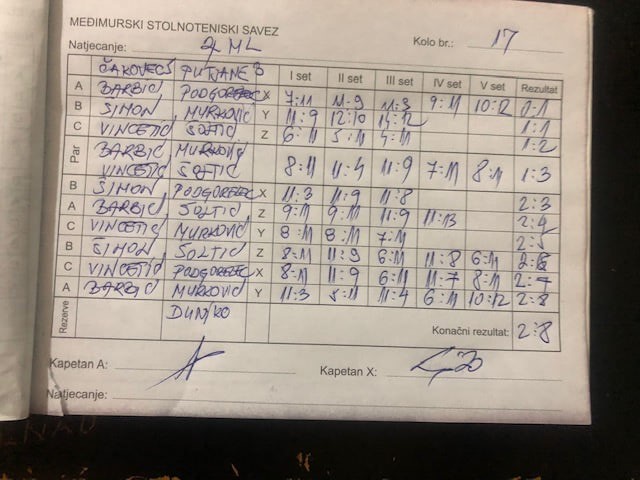 MEĐIMURSKI STOLNOTENISKI SAVEZ
Natjecanje: 2. ML Kolo br.: 17
ČAKOVEC 5 PUTJANE B I set II set III set IV set V set Rezultat
A BARBIĆ PODGORELEC X 7:11 11:9 11:3 9:11 10:12 0:1
B ŠIMON MURKOVIĆ Y 11:9 12:10 14:12 1:1
C VINCETIĆ ŠOLTIĆ Z 6:11 5:11 4:11 1:2
Par BARBIĆ MURKOVIĆ
VINCETIĆ ŠOLTIĆ 8:11 11:4 11:9 7:11 8:11 1:3
B ŠIMON PODGORELEC X 11:3 11:9 11:8 2:3
A BARBIĆ ŠOLTIĆ Z 9:11 9:11 11:9 11:13 2:4
C VINCETIĆ MURKOVIĆ Y 8:11 8:11 7:11 2:5
B ŠIMON ŠOLTIĆ Z 8:11 11:9 6:11 11:8 6:11 2:6
C VINCETIĆ PODGORELEC X 8:11 11:9 6:11 11:7 8:11 2:7
A BARBIĆ MURKOVIĆ Y 11:3 5:11 11:4 6:11 10:12 2:8
Rezerve Konačni rezultat: 2:8
Kapetan A: Kapetan X:
Natjecanje: